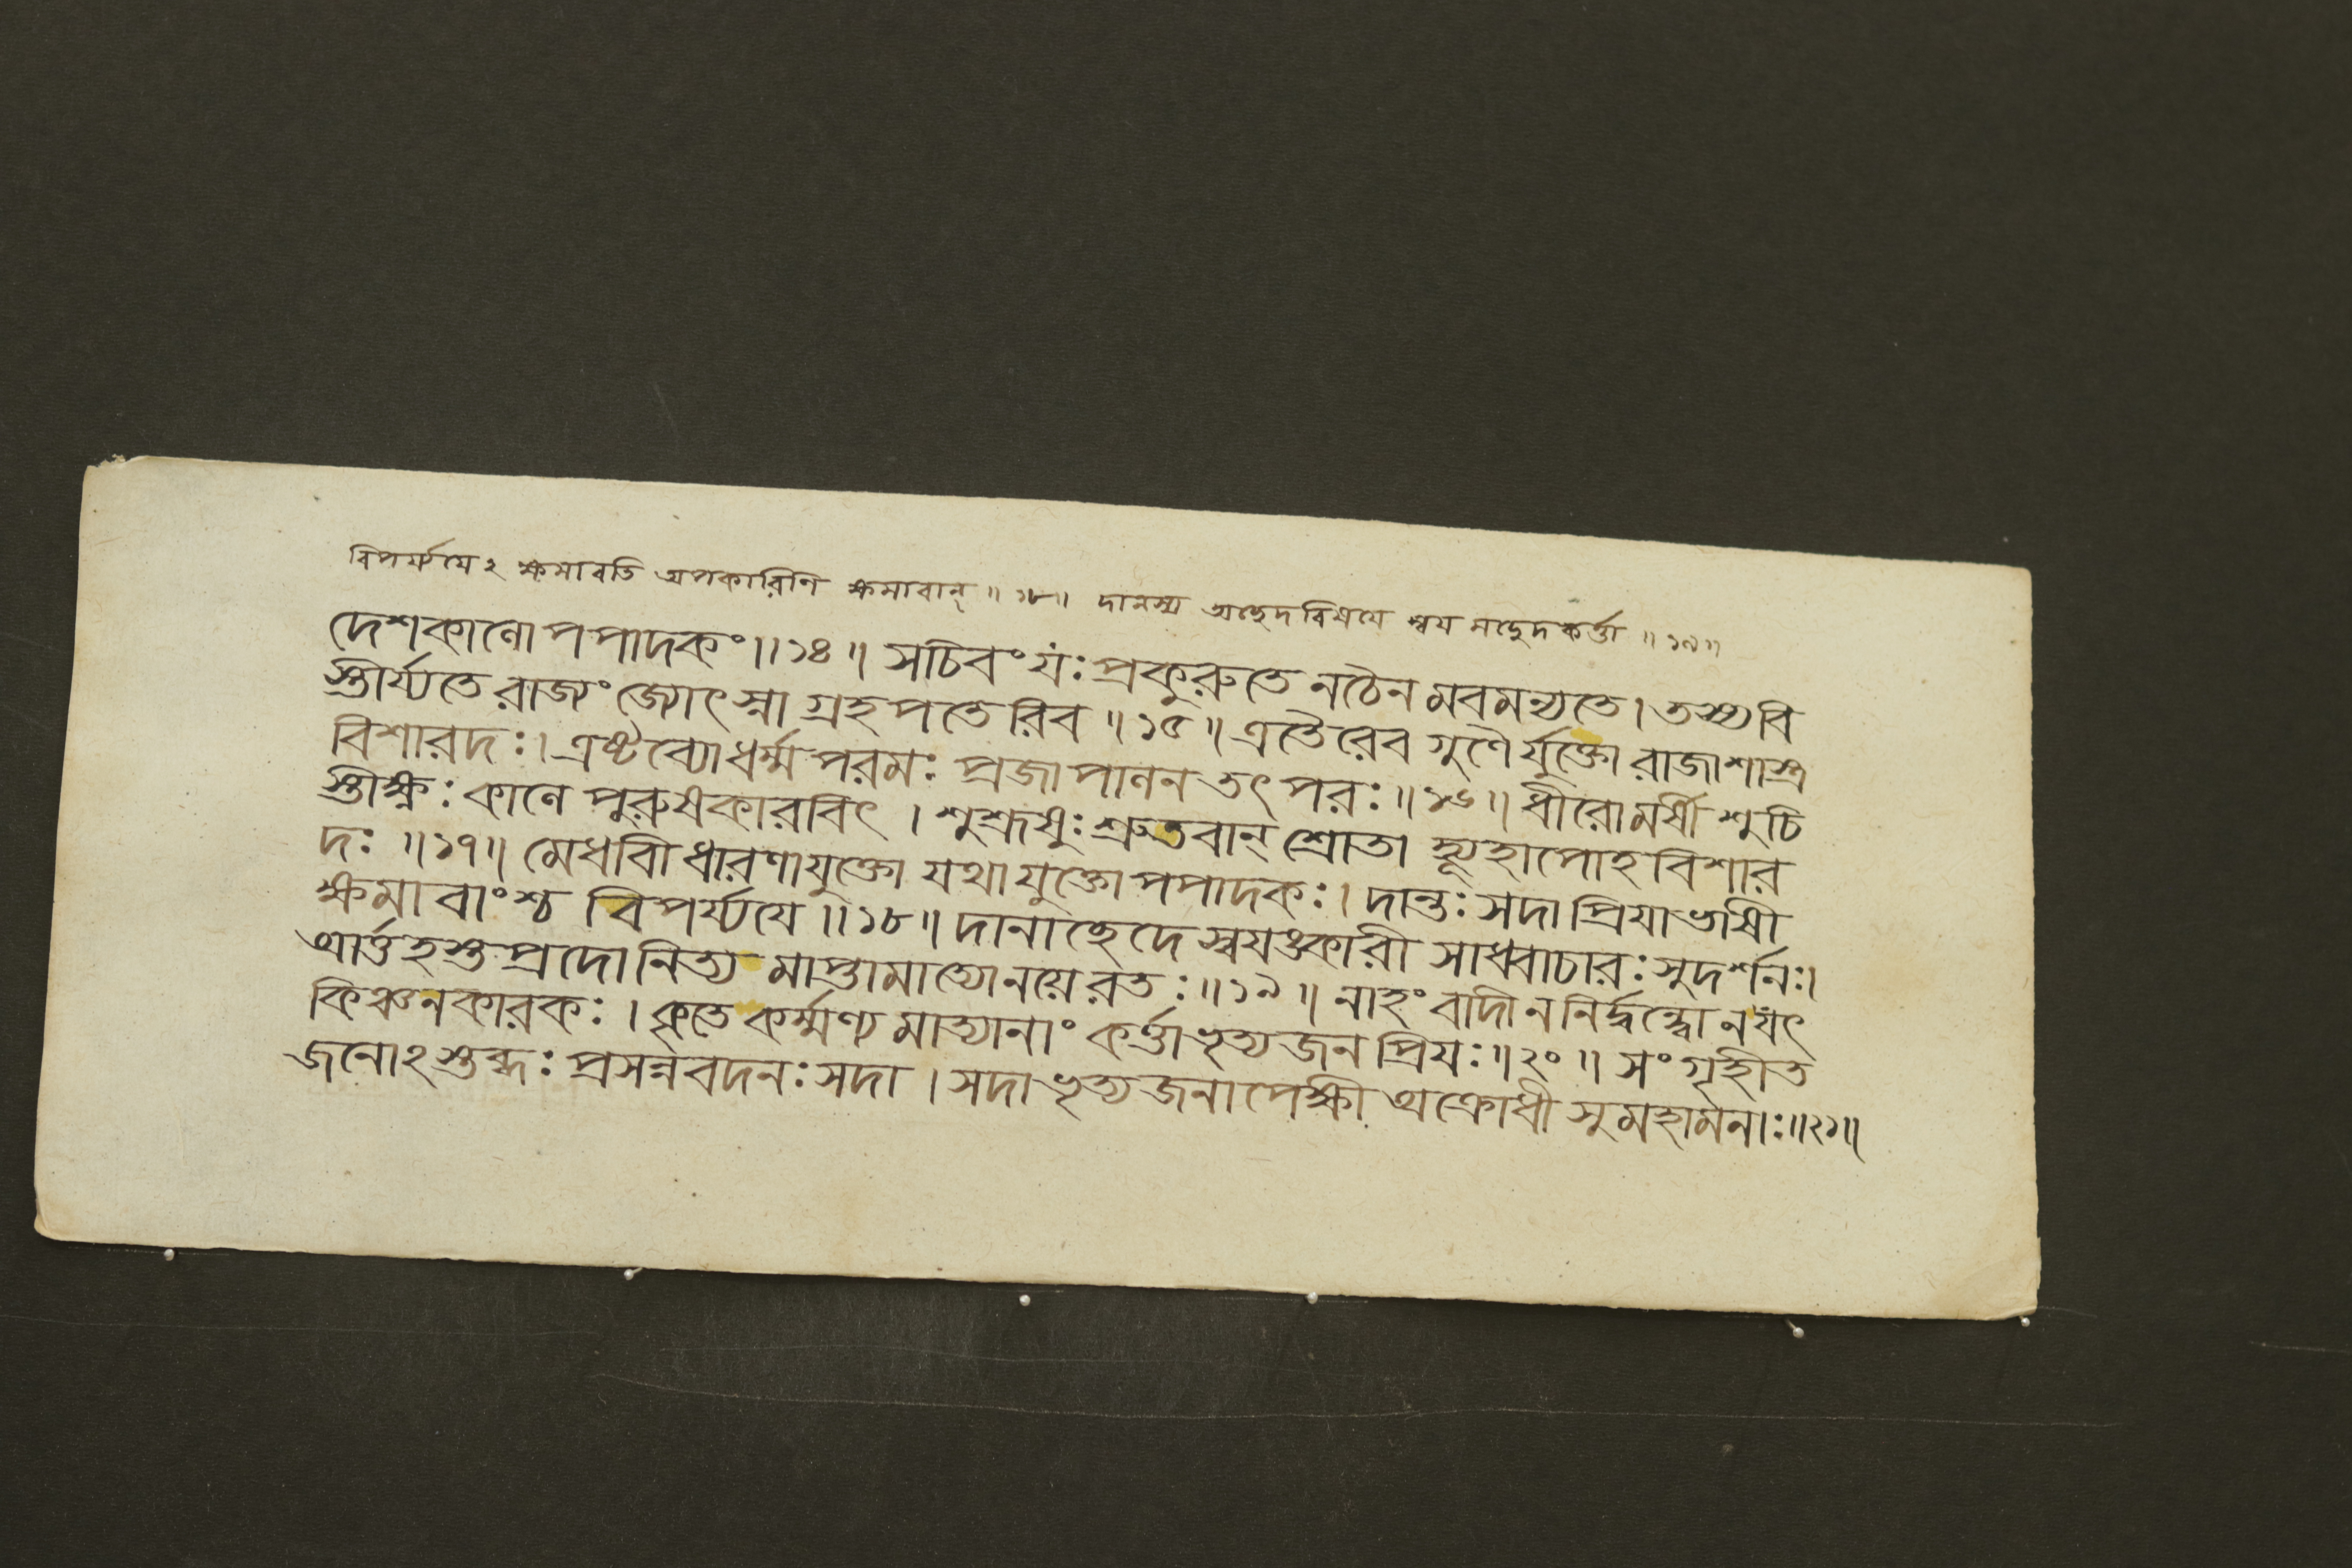 বিপর্য্যয়ে২ ক্ষমাবতি অপকারিণি ক্ষমাবান্ ॥ ১৮ ॥ দানস্য অচ্ছেদবিষয়ে স্বয়মচ্ছেদকর্ত্তা ॥ ১৯ ॥
দেশকালোপপাদকং ॥ ১৪ ॥ সচিবং যঃ প্রকুরুতে নচৈনমবমন্যতে । তস্য বি
স্তীর্য্যতে রাজ্যং জ্যোৎস্না গ্রহপতেরিব ॥ ১৫ ॥ এতৈরেব গুণৈর্যুক্তো রাজা শাস্ত্র
বিশারদঃ । এষ্টব্যো ধর্ম্মপরমঃ প্রজাপালনতৎপরঃ ॥ ১৬ ॥ ধীরোমর্ষী শুচি
স্তীক্ষ্ণঃ কালে পুরুষকারবিৎ । শুশ্রূষুঃ শ্রুতবান্ শ্রোতা হ্যূহাপোহবিশার
দঃ ॥ ১৭ ॥ মেধাবী ধারণাযুক্তো যথাযুক্তোপপাদকঃ । দান্তঃ সদা প্রিয়াভাষী
ক্ষমাবাংশ্চ বিপর্য্যয়ে ॥ ১৮ ॥ দানাচ্ছেদে স্বয়ঙ্কারী সাধ্বাচারঃ সুদর্শনঃ ।
আর্ত্তহস্তপ্রদো নিত্যমাপ্তামাত্যো নয়ে রতঃ ॥ ১৯ ॥ নাহংবাদী ন নির্দ্বন্দ্বো ন যৎ
কিঞ্চনকারকঃ । কৃতে কর্ম্মণ্যমাত্যানাং কর্ত্তা ভৃত্যজনপ্রিয়ঃ ॥ ২০ ॥ সংগৃহীত
জনোঽস্তব্ধঃ প্রসন্নবদনঃ সদা । সদা ভৃত্যজনাপেক্ষী অক্রোধী সুমহামনাঃ ॥ ২১ ॥